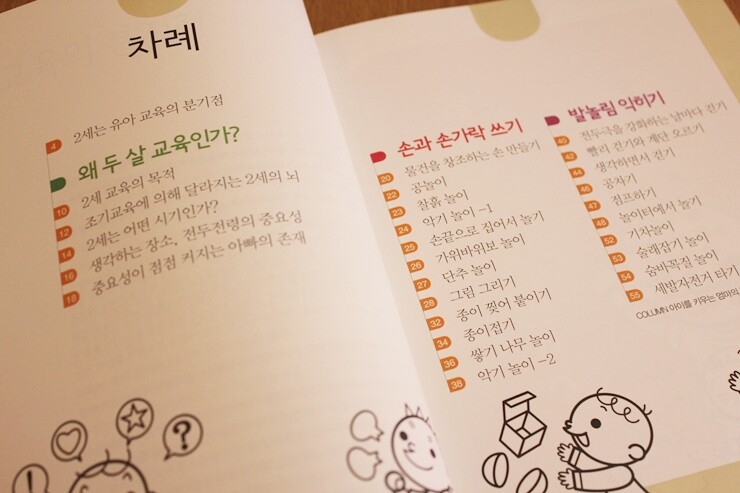 차례
4 2세는 유아 교육의 분기점
왜 두 살 교육인가?
10 2세 교육의 목적
12 조기교육에 의해 달라지는 2세의 뇌
14 2세는 어떤 시기인가?
16 생각하는 장소, 전두전령의 중요성
18 중요성이 점점 커지는 아빠의 존재
손과 손가락 쓰기
20 물건을 창조하는 손 만들기
22 공놀이
23 찰흙 놀이
24 악기 놀이 -1
25 손끝으로 집어서 놀기
26 가위바위보 놀이
27 단추 놀이
28 그림 그리기
32 종이 찢어 붙이기
34 종이접기
36 쌓기 나무 놀이
38 악기 놀이 -2
발놀림 익히기
40 전두극을 강화하는 날마다 걷기
42 빨리 걷기와 계단 오르기
44 생각하면서 걷기
46 공차기
47 점프하기
48 놀이터에서 놀기
52 기차놀이
53 술래잡기 놀이
54 숨바꼭질 놀이
55 세발자전거 타기
COLUMN 아이를 키우는 엄마의
?
!